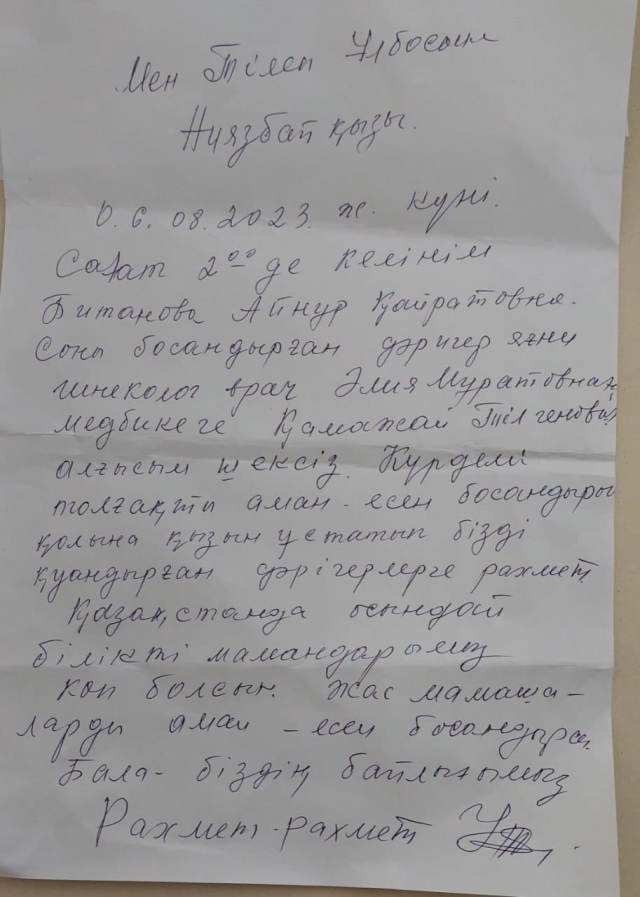 Мен Тілеп Ұлбосын
Ниязбай қызы.
0.6.08.2023. ж. күні.
Сағат 2⁰⁰ де келінім
Битанова Айнур Қайратовна.
Соны босандырған дәригер яғни
гинеколог врач Әлия Муратовнаң
медбикеге Қамажай
алғысым шексіз. Күрделі
толғақты аман-есен босандырып
қолына қызын ұстатып бізді
қуандырған дәрігерлерге рахмет.
Қазақстанда осындай
білікті мамандарымыз
көп болсын. Жас мамаша-
ларды аман-есен босандырсын
Бала- біздің байлығымыз
Рахмет-рахмет